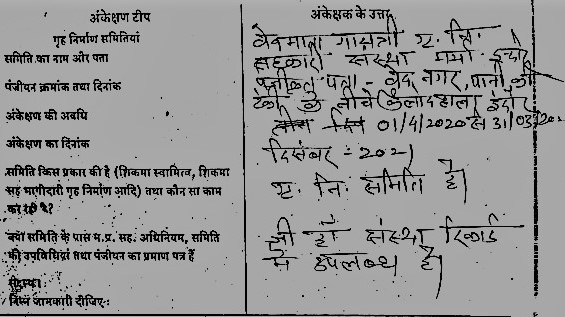 अंकेक्षण टीप
अंकेक्षक के उत्तर
गृह निर्माण समितियां
समिति का नाम और पता
वेदमाता गायत्री गृ. नि.
सहकारी संस्था मर्या इन्दौर
पंजीयन क्रमांक तथा दिनांक
पंजीकृत पता - वेद नगर, पानी की
टंकी के नीचे इंदौर
अंकेक्षण की अवधि
01/4/2020 से 31/03/202
अंकेक्षण का दिनांक
दिसंबर - 2021
समिति किस प्रकार की है (शिकमा स्वामित्व, शिकमा
सह भागीदारी गृह निर्माण आदि) तथा कौन सा काम
कर रही है?
गृ. नि. समिति है।
क्या समिति के पास म.प्र. सह. अधिनियम, समिति
की उपविधियां तथा पंजीयन का प्रमाण पत्र हैं
जी हाँ संस्था रिकार्ड
में उपलब्ध है।
निम्न जानकारी दीजिए:-